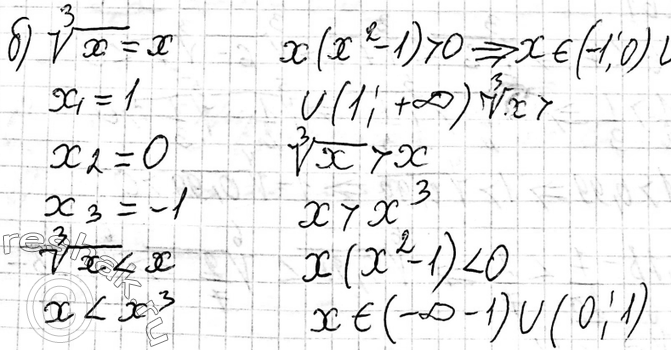 б) ∛x = x
x₁ = 1
x₂ = 0
x₃ = -1
∛x < x
x < x³
x(x² - 1) > 0 ⇒ x ∈ (-1; 0) ∪
∪ (1; +∞) ∛x >
∛x > x
x > x³
x(x² - 1) < 0
x ∈ (-∞ -1) ∪ (0; 1)
reshak.ru